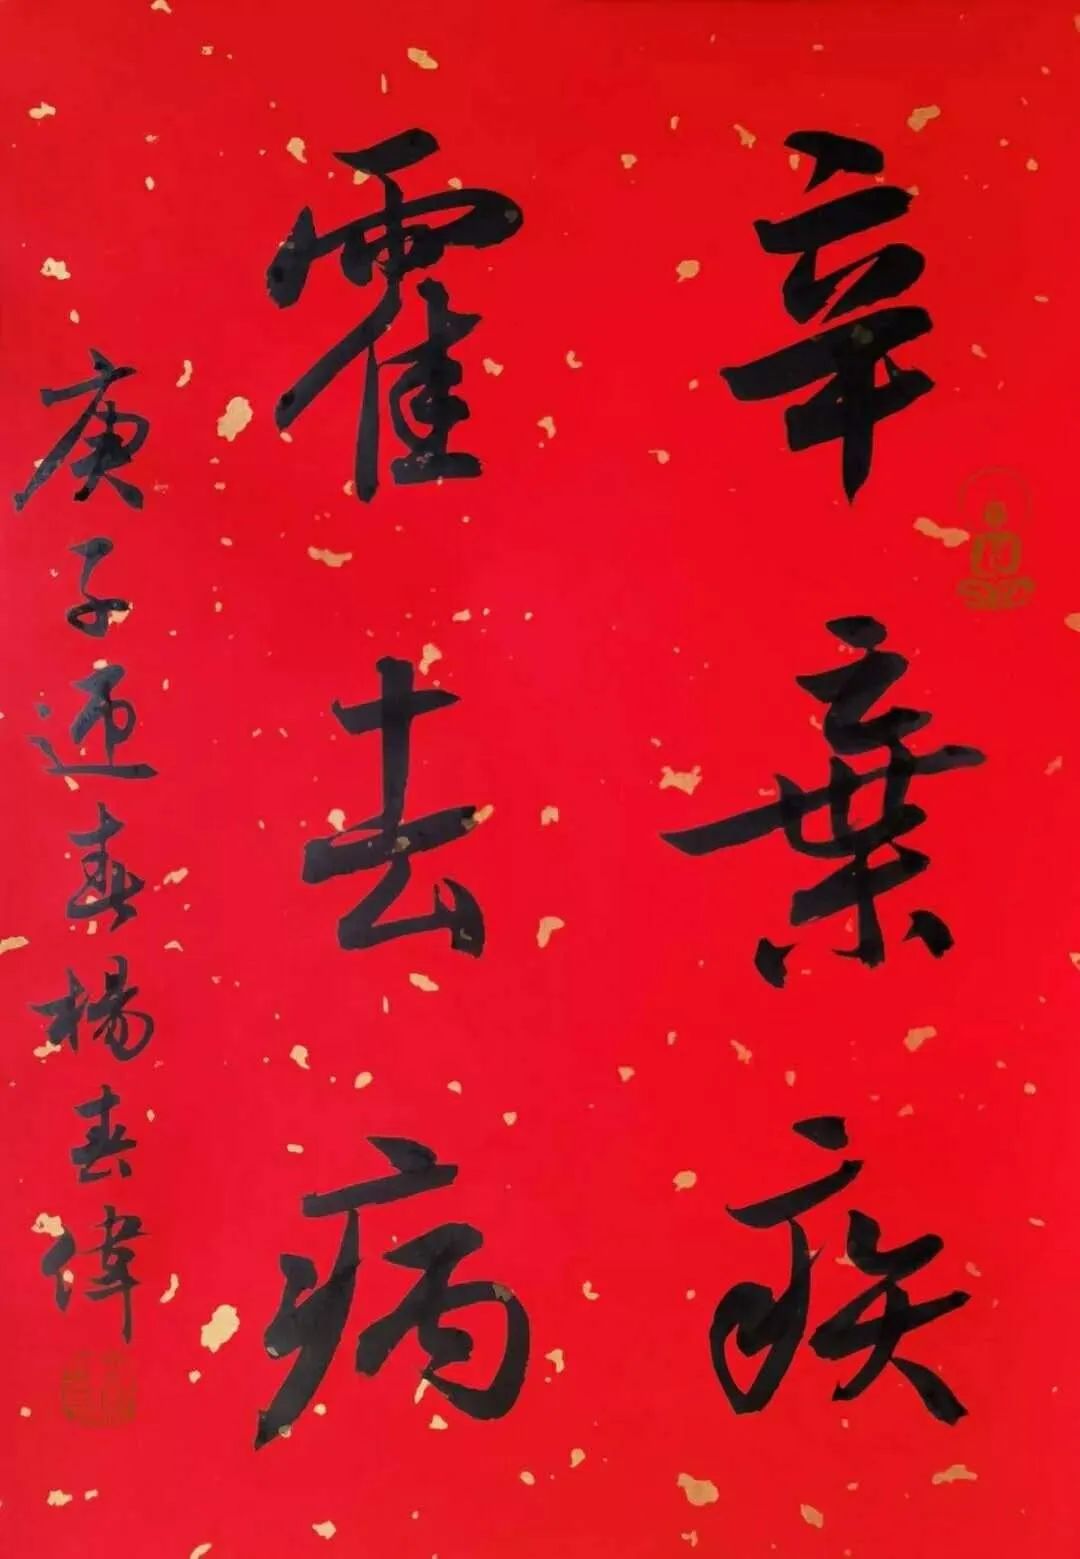 辛棄疾
霍去病
庚子迎春楊春偉